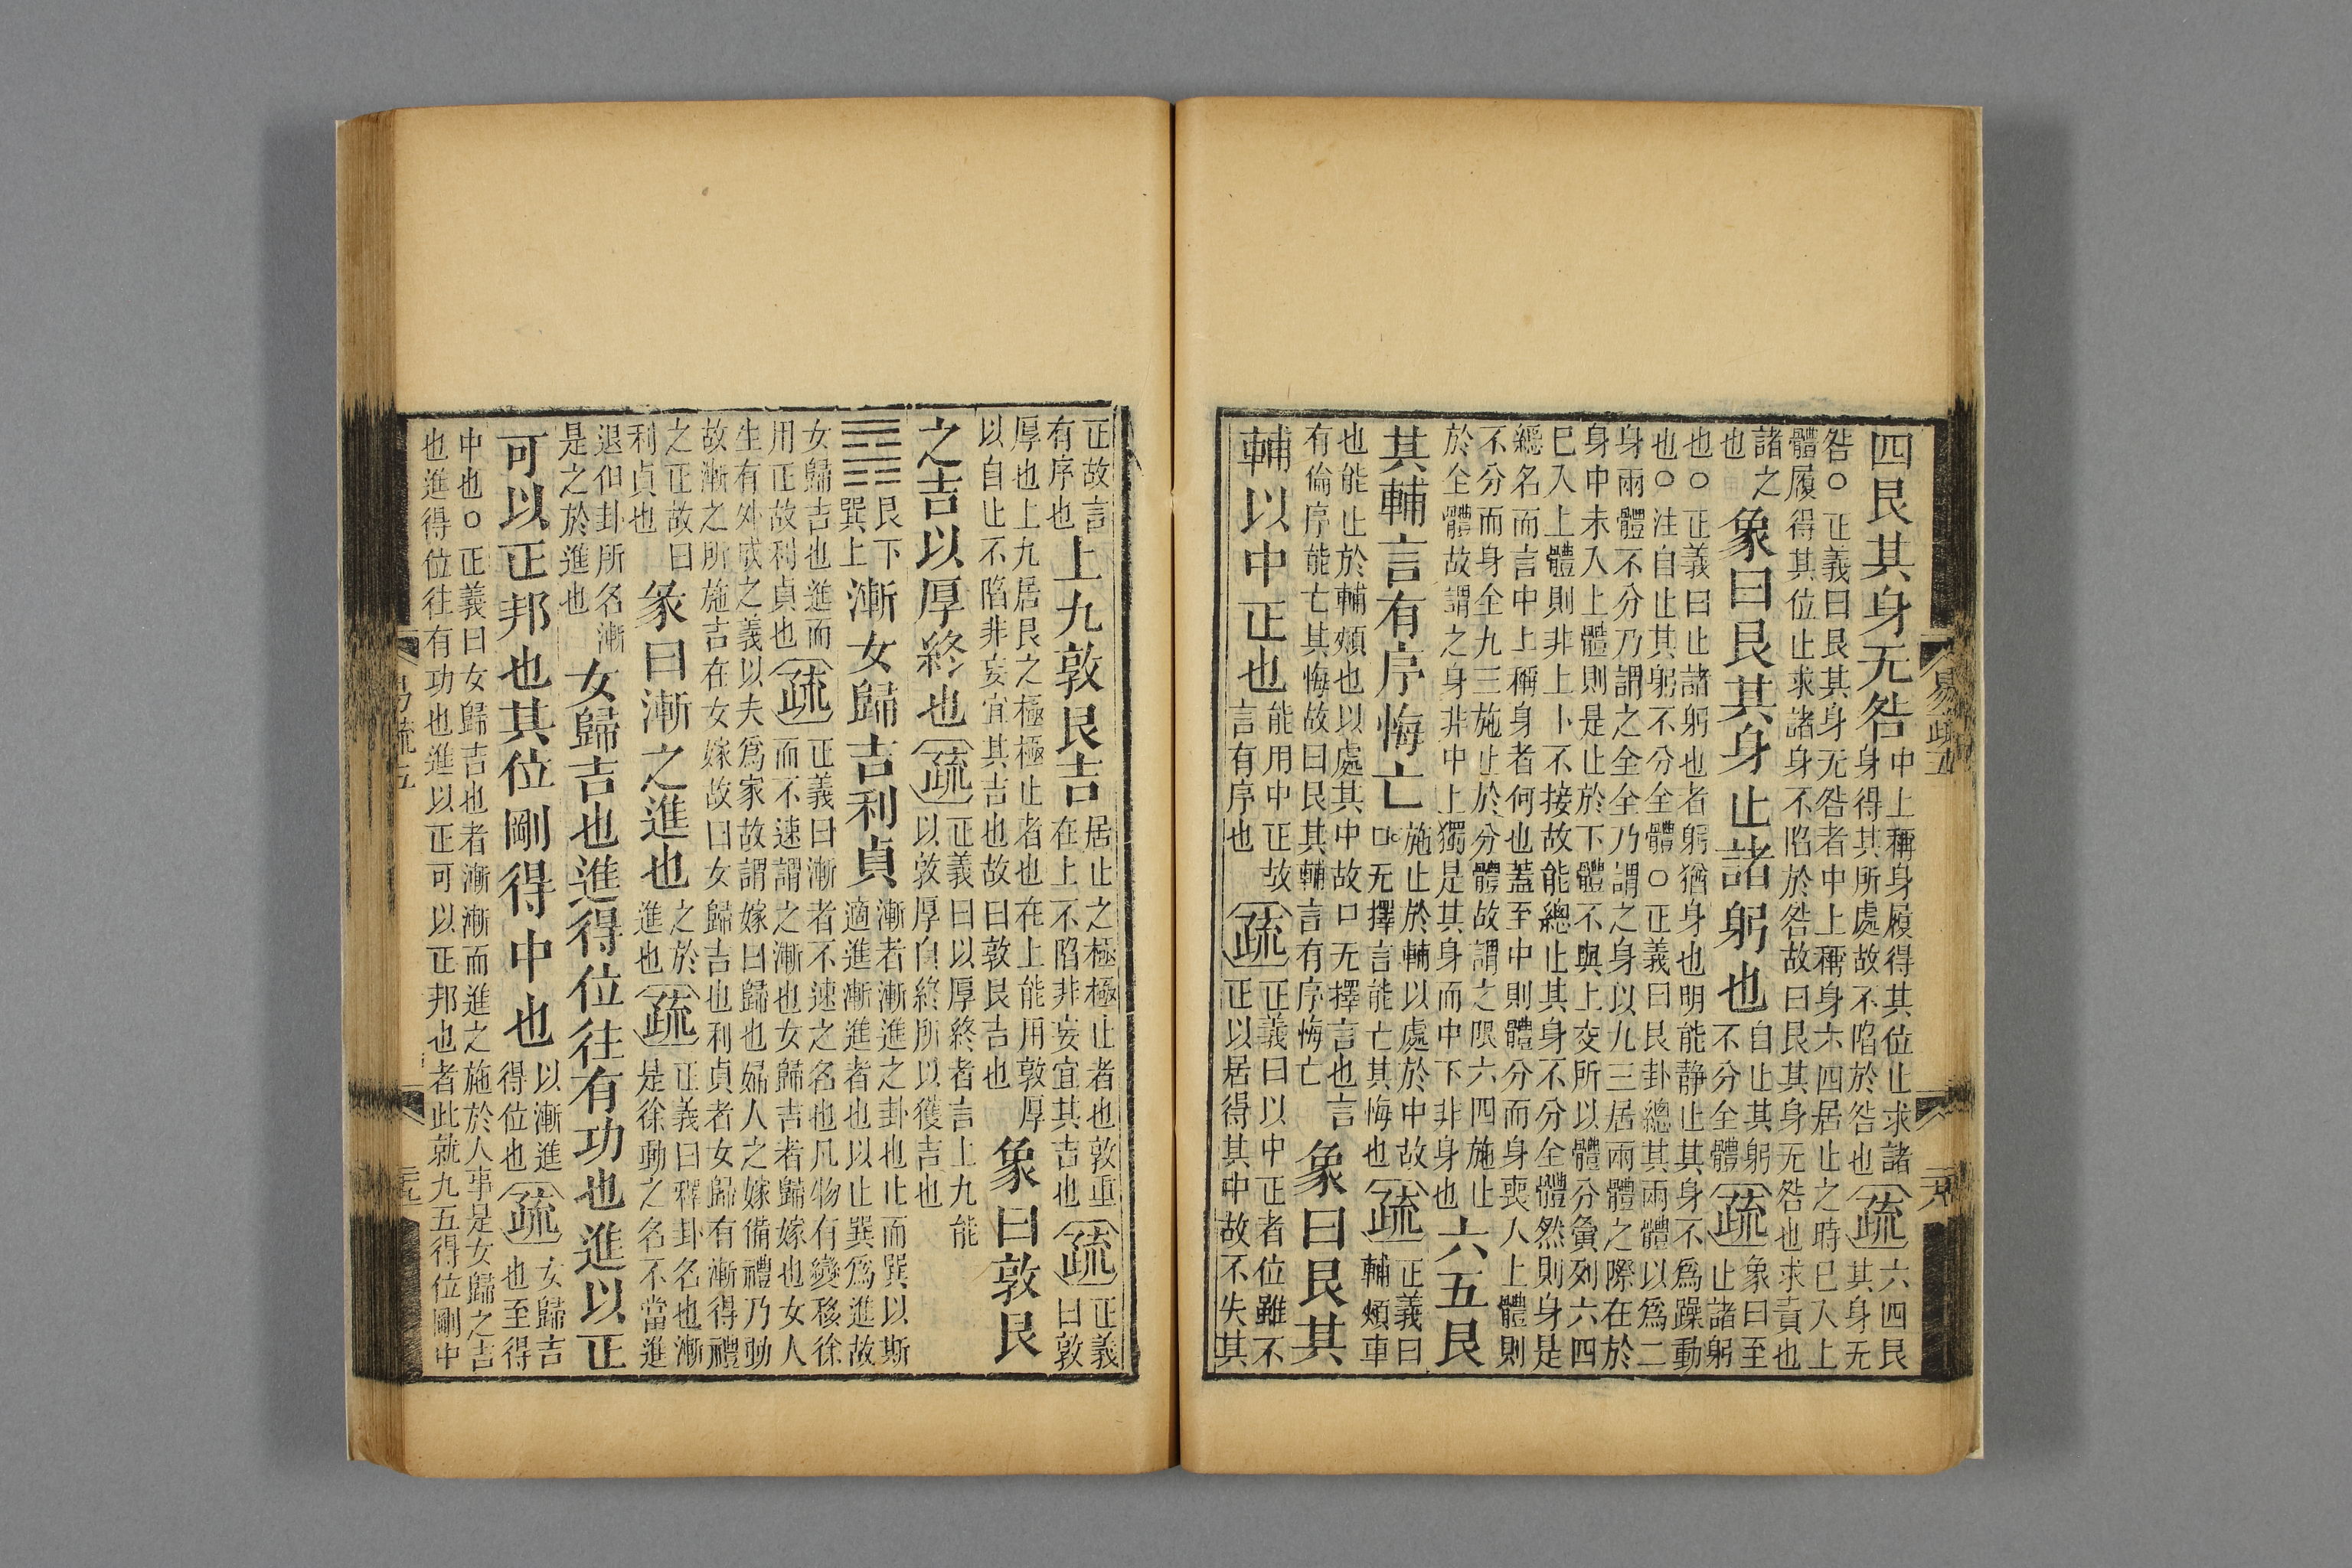 易疏五
四艮其身无咎中上稱身履得其位止求諸
身得其所處故不陷於咎也疏六四艮
其身无
咎○正義曰艮其身无咎者中上稱身六四居止之時巳入上
體履得其位止求諸身不陷於咎故曰艮其身无咎也求責也
諸之
也象曰艮其身止諸躬也自止其躬
不分全體疏象曰至
止諸躬
也○正義曰止諸躬也者躬猶身也明能靜止其身不爲躁動
也○注自止其躬不分全體○正義曰艮卦總其兩體以爲二
身兩體不分乃謂之全全乃謂之身以九三居兩體之際在於
身中未入上體則是止於下體不與上交所以體分夤列六四
巳入上體則非上卜不接故能總止其身不分全體然則身是
總名而言中上稱身者何也蓋至中則體分而身喪人上體則
不分而身全九三施止於分體故謂之限六四施止
於全體故謂之身非中上獨是其身而中下非身也六五艮
其輔言有序悔亡施止於輔以處於中故
口无擇言能亡其悔也疏正義曰
輔頰車
也能止於輔頰也以處其中故口无擇言也言
有倫序能亡其悔故曰艮其輔言有序悔亡象曰艮其
輔以中正也能用中正故
言有序也疏正義曰以中正者位雖不
正以居得其中故不失其
正故言
有序也上九敦艮吉居止之極極止者也敦重
在上不陷非妄宜其吉也疏正義
曰敦
厚也上九居艮之極極止者也在上能用敦厚
以自止不陷非妄宜其吉也故曰敦艮吉也象曰敦艮
之吉以厚終也疏正義曰以厚終者言上九能
以敦厚自終所以獲吉也
䷴艮下
巽上漸女歸吉利貞漸者漸進之卦也止而巽以斯
適進漸進者也以止巽爲進故
女歸吉也進而
用正故利貞也疏正義曰漸者不速之名也凡物有變移徐
而不速謂之漸也女歸吉者歸嫁也女人
生有外成之義以夫爲家故謂嫁曰歸也婦人之嫁備禮乃動
故漸之所施吉在女嫁故曰女歸吉也利貞者女歸有漸得禮
之正故曰
利貞也彖曰漸之進也之於
進也疏正義曰釋卦名也漸
是徐動之名不當進
退但卦所名漸
是之於進也女歸吉也進得位往有功也進以正
可以正邦也其位剛得中也以漸進
得位也疏女歸吉
也至得
中也○正義曰女歸吉也者漸漸而進之施於人事是女歸之吉
也進得位往有功也進以正可以正邦也者此就九五得位剛中